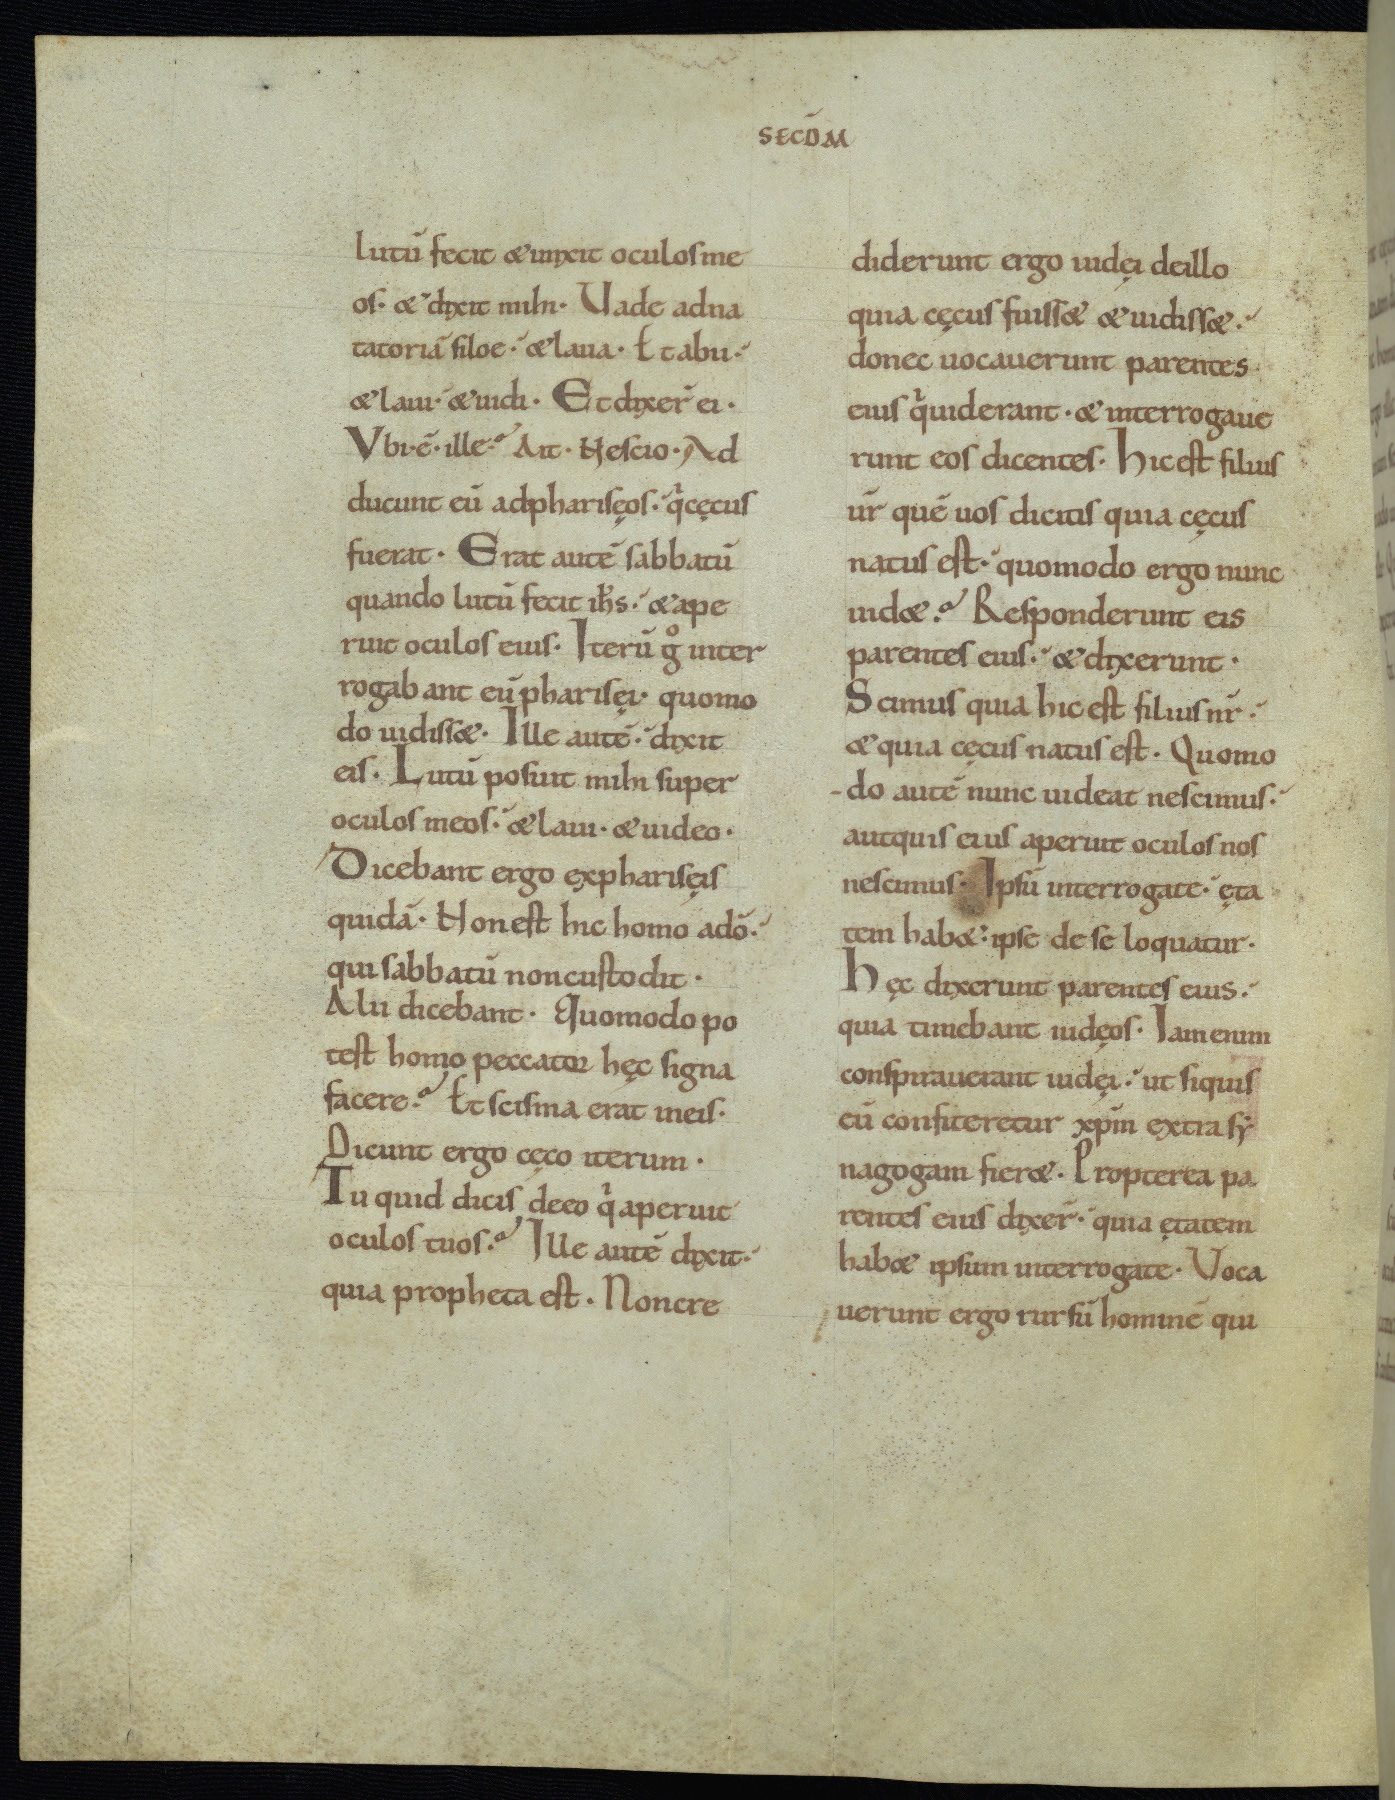 SECD̄M
lutū fecit & unxit oculos me
os· & dixit mihi· Vade ad na
tatoriā siloe· & laua· Et abii·
& laui· & uidi· Et dixer̄ ei·
Vbi·ē·ille? Ait· Nescio· Ad
ducunt eū ad pharisęos· q̄ cęcus
fuerat· Erat autē sabbatū
quando lutū fecit ih̄s· & ape
ruit oculos eius· Iterū g̊ inter
rogabant eū pharisęi· quomo
do uidiss&· Ille autē· dixit
eis· Lutū posuit mihi super
oculos meos· & laui· & uideo·
Dicebant ergo ex pharisęis
quidā· Non est hic homo a dō·
qui sabbatū non custodit·
Alii dicebant· Quomodo po
test homo peccator hęc signa
facere? Et scisma erat in eis·
Dicunt ergo cęco iterum·
Tu quid dicis de eo q̄ aperuit
oculos tuos? Ille autē dixit·
quia propheta est· Non cre
diderunt ergo iudęi de illo
quia cęcus fuiss& & uidiss&·
donec uocauerunt parentes
eius q̄ uiderant· & interrogaue
runt eos dicentes· Hic est filius
ur̄ quē uos dicitis quia cęcus
natus est· quomodo ergo nunc
uid&? Responderunt eis
parentes eius· & dixerunt·
Scimus quia hic est filius nr̄·
& quia cęcus natus est· Quomo
do autē nunc uideat nescimus·
aut quis eius aperuit oculos nos
nescimus· Ipsū interrogate· ęta
tem hab&· ipse de se loquatur·
Hęc dixerunt parentes eius·
quia timebant iudęos· Iam enim
conspirauerant iudęi· ut siquis
eū confiteretur xp̄m extra sy
nagogam fier&· Propterea pa
rentes eius dixer̄· quia ętatem
hab& ipsum interrogate· Voca
uerunt ergo rursū hominē qui